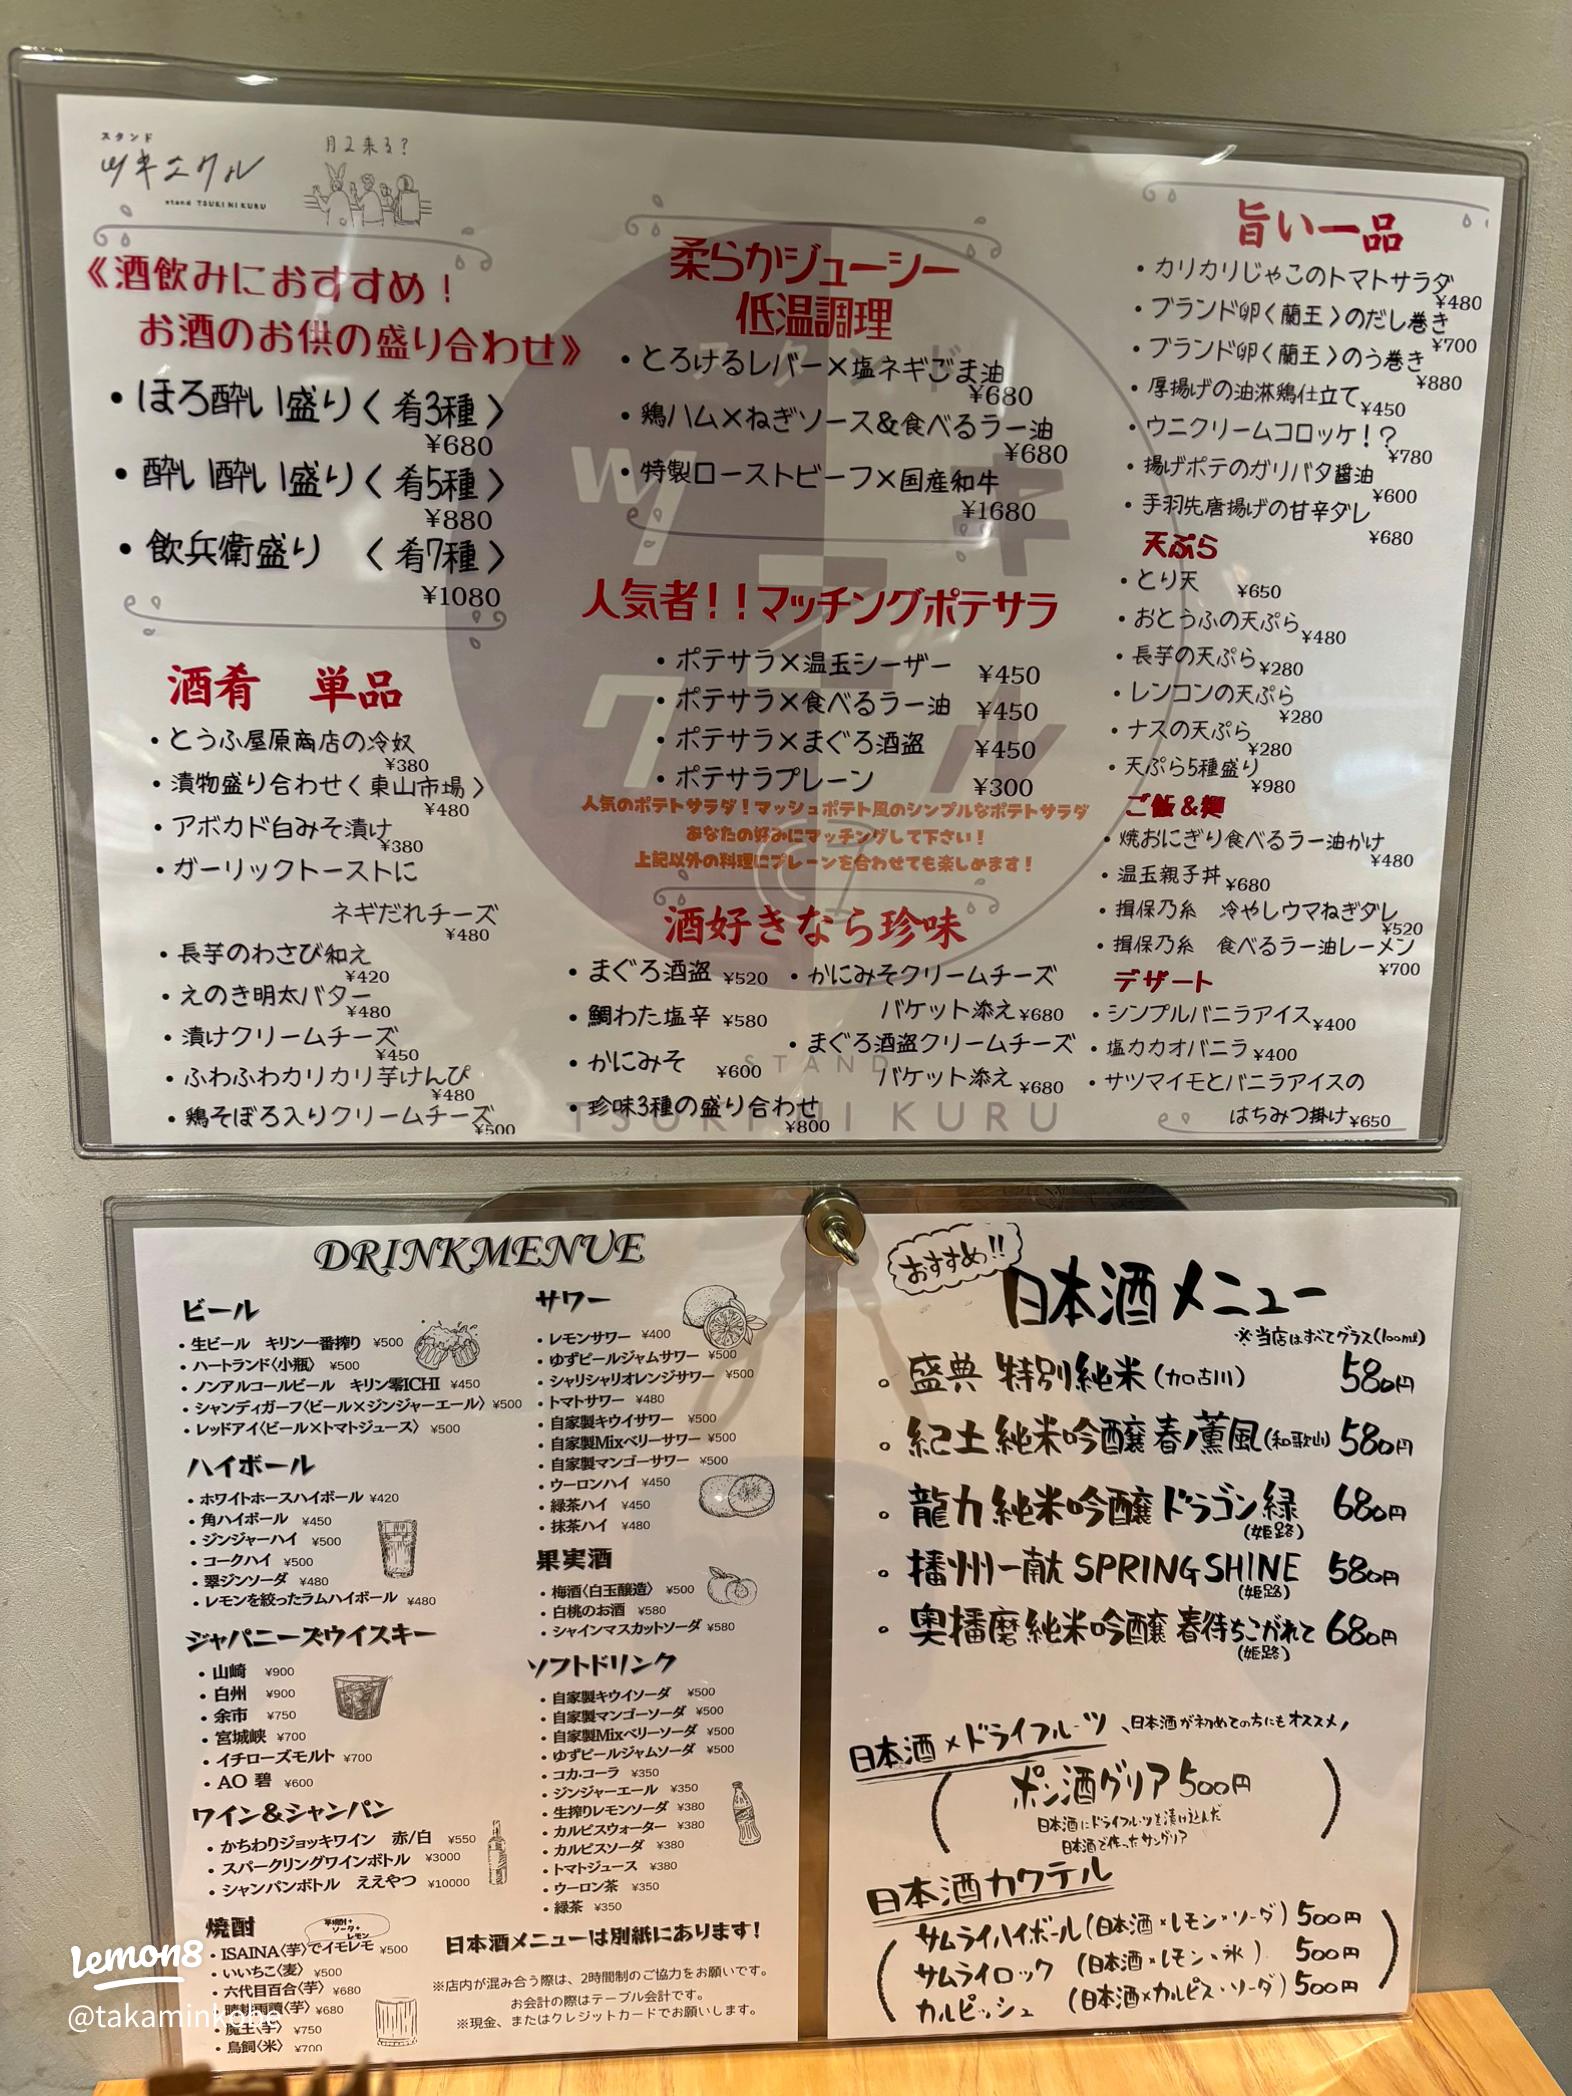 スタンド
ツキニクル
stand TSUKI NI KURU
月2来る?
《酒飲みにおすすめ!
お酒のお供の盛り合わせ》
・ほろ酔い盛り〈肴3種〉
¥680
・酔い酔い盛り〈肴5種〉
¥880
・飲兵衛盛り 〈肴7種〉
¥1080
酒肴 単品
・とうふ屋原商店の冷奴
¥380
・漬物盛り合わせ〈東山市場〉
¥480
・アボカド白みそ漬け
¥380
・ガーリックトーストに
ネギだれチーズ
¥480
・長芋のわさび和え
¥420
・えのき明太バター
¥480
・漬けクリームチーズ
¥450
・ふわふわカリカリ芋けんぴ
¥480
・鶏そぼろ入りクリームチーズ
¥500
柔らかジューシー
低温調理
・とろけるレバー×塩ネギごま油
¥680
・鶏ハム×ねぎソース&食べるラー油
¥680
・特製ローストビーフ×国産和牛
¥1680
人気者!!マッチングポテサラ
・ポテサラ×温玉シーザー ¥450
・ポテサラ×食べるラー油 ¥450
・ポテサラ×まぐろ酒盗 ¥450
・ポテサラプレーン ¥300
人気のポテトサラダ!マッシュポテト風のシンプルなポテトサラダ
あなたの好みにマッチングして下さい!
上記以外の料理にプレーンを合わせても楽しめます!
酒好きなら珍味
・まぐろ酒盗 ¥520
・鯛わた塩辛 ¥580
・かにみそ ¥600
・珍味3種の盛り合わせ
¥800
・かにみそクリームチーズ
バケット添え ¥680
・まぐろ酒盗クリームチーズ
バケット添え ¥680
スタンド
ツキニクル
STAND
TSUKI NI KURU
旨い一品
・カリカリじゃこのトマトサラダ
¥480
・ブランド卵〈蘭王〉のだし巻き
¥700
・ブランド卵〈蘭王〉のう巻き
¥880
・厚揚げの油淋鶏仕立て
¥450
・ウニクリームコロッケ!?
¥780
・揚げポテのガリバタ醤油
¥600
・手羽先唐揚げの甘辛ダレ
¥680
天ぷら
・とり天 ¥650
・おとうふの天ぷら ¥480
・長芋の天ぷら ¥280
・レンコンの天ぷら
¥280
・ナスの天ぷら
¥280
・天ぷら5種盛り
¥980
ご飯&麺
・焼おにぎり食べるラー油かけ
¥480
・温玉親子丼 ¥680
・揖保乃糸 冷やしウマねぎダレ
¥520
・揖保乃糸 食べるラー油レーメン
¥700
デザート
・シンプルバニラアイス ¥400
・塩カカオバニラ ¥400
・サツマイモとバニラアイスの
はちみつ掛け ¥650
DRINKMENUE
ビール
・生ビール キリン一番搾り ¥500
・ハートランド〈小瓶〉 ¥500
・ノンアルコールビール キリン零ICHI ¥450
・シャンディガーフ〈ビール×ジンジャーエール〉 ¥500
・レッドアイ〈ビール×トマトジュース〉 ¥500
ハイボール
・ホワイトホースハイボール ¥420
・角ハイボール ¥450
・ジンジャーハイ ¥500
・コークハイ ¥500
・翠ジンソーダ ¥480
・レモンを絞ったラムハイボール ¥480
ジャパニーズウイスキー
・山崎 ¥900
・白州 ¥900
・余市 ¥750
・宮城峡 ¥700
・イチローズモルト ¥700
・AO 碧 ¥600
ワイン&シャンパン
・かちわりジョッキワイン 赤/白 ¥550
・スパークリングワインボトル ¥3000
・シャンパンボトル ええやつ ¥10000
焼酎
芋焼酎+
ソーダ+
レモン
・ISAINA〈芋〉でイモレモ ¥500
・いいちこ〈麦〉 ¥500
・六代目百合〈芋〉 ¥680
・晴耕雨讀〈芋〉 ¥680
・魔王〈芋〉 ¥750
・鳥飼〈米〉 ¥700
サワー
・レモンサワー ¥400
・ゆずピールジャムサワー ¥500
・シャリシャリオレンジサワー ¥500
・トマトサワー ¥480
・自家製キウイサワー ¥500
・自家製Mixベリーサワー ¥500
・自家製マンゴーサワー ¥500
・ウーロンハイ ¥450
・緑茶ハイ ¥450
・抹茶ハイ ¥480
果実酒
・梅酒〈白玉醸造〉 ¥500
・白桃のお酒 ¥580
・シャインマスカットソーダ ¥580
ソフトドリンク
・自家製キウイソーダ ¥500
・自家製マンゴーソーダ ¥500
・自家製Mixベリーソーダ ¥500
・ゆずピールジャムソーダ ¥500
・コカ・コーラ ¥350
・ジンジャーエール ¥350
・生搾りレモンソーダ ¥380
・カルピスウォーター ¥380
・カルピスソーダ ¥380
・トマトジュース ¥380
・ウーロン茶 ¥350
・緑茶 ¥350
日本酒メニューは別紙にあります!
※店内が混み合う際は、2時間制のご協力をお願いです。
お会計の際はテーブル会計です。
※現金、またはクレジットカードでお願いします。
おすすめ!!
日本酒メニュー
※当店はすべてグラス(100ml)
。盛典 特別純米(加古川) 580円
。紀土 純米吟醸 春ノ薫風(和歌山) 580円
。龍力 純米吟醸 ドラゴン緑 680円
(姫路)
。播州一献 SPRING SHINE 580円
(姫路)
。奥播磨 純米吟醸 春待ちこがれて 680円
(姫路)
日本酒×ドライフルーツ 、日本酒が初めての方にもオススメ
ポン酒グリア 500円
日本酒にドライフルーツを漬け込んだ
日本酒で作ったサングリア
日本酒カクテル
サムライハイボール(日本酒×レモン×ソーダ) 500円
サムライロック (日本酒×レモン×氷) 500円
カルピッシュ (日本酒×カルピス・ソーダ) 500円
lemon8
@takaminkobe